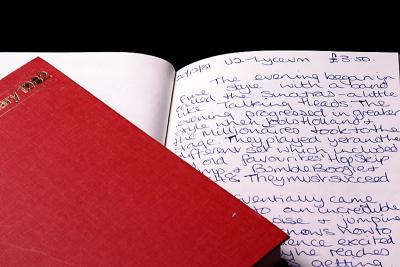 ary 1982
20/12/81 U2-Lyceum £3.50.
The evening began in
fine style with a band
called the Sinatras-a little
like Talking Heads. The
evening progressed in greater
style when Jools Holland &
the millionaires took to the
stage. They played yet another
different set which included
old favourites Hop Skip
& Jump & Bumble Boogie &
They must succeed
eventually came
to an incredible
noise & jumping
knows how to
audience excited
he reaches
getting